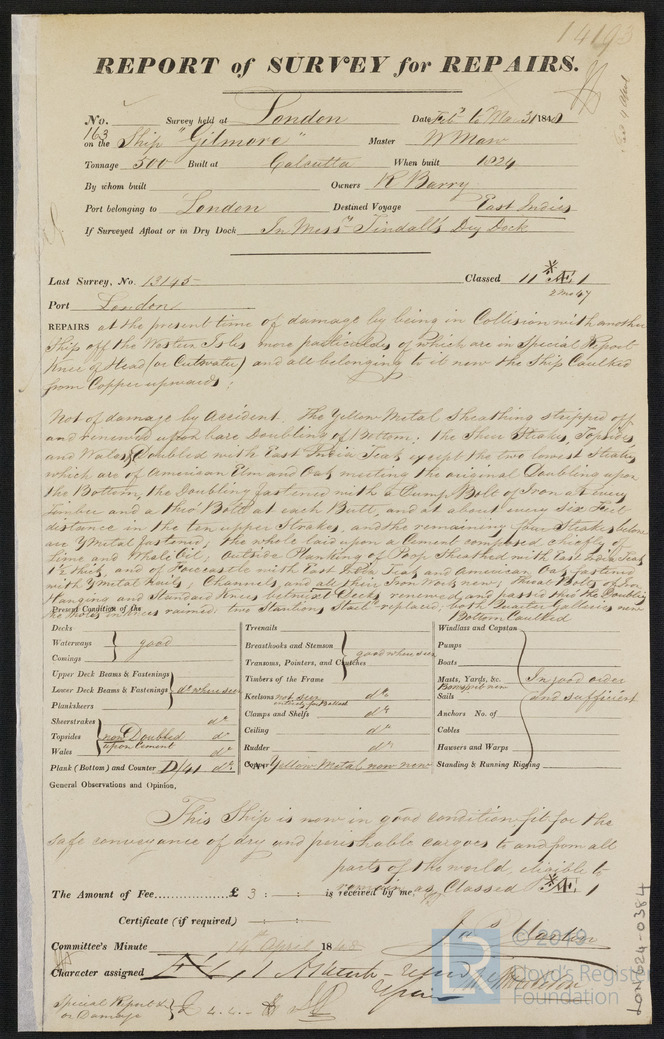 14193
REPORT of SURVEY for REPAIRS.
No. 163 Survey held at London Date Feb. 6 to Mar 31 1848
on the Ship "Gilmore" Master W Maw
Tonnage 500 Built at Calcutta When built 1824
By whom built Owners R Barry
Port belonging to London Destined Voyage East Indies
If Surveyed Afloat or in Dry Dock In Messrs Tindall's Dry Dock
Last Survey, No. 13145 Classed 11 Æ 1
Port London
REPAIRS at the present time of damage by being in Collision with another
Ship off the Western Isles more particulars of which are in Special Report
Knee of Head (or Cutwater) and all belonging to it new the Ship Caulked
from Copper upwards;
Not of damage by Accident. The Yellow Metal Sheathing stripped off
and renewed upon bare Doubling of Bottom: the Sheer Strakes, Topsides
and Wales Doubled with East India Teak except the two lowest Strakes
which are of American Elm and Oak meeting the original Doubling upon
the Bottom, the Doubling fastened with a Dump Bolt of Iron at every
Timber and a thro' Bolt at each Butt, and at about every Six Feet
distance in the ten upper Strakes, and the remaining four Strakes below
are Y Metal fastened, the whole laid upon a Cement composed chiefly of
Lime and Whale Oil; Outside Planking of Poop Sheathed with East India Teak
1½ thick, and of Forecastle with East India Teak and American Oak fastened
with Y Metal Nails; Channels and all their Iron Work new; thro' Bolts of Iron
Hanging and Standard Knees betwixt Decks renewed and passed thro' the Doubling
the holes in Knees reimed; two Stantion replaced; both Quarter Galleries new
Present Condition of the
Bottom Caulked
Decks
Waterways good
Comings
Upper Deck Beams & Fastenings
Lower Deck Beams & Fastenings do where seen
Planksheers
Sheerstrakes do
Topsides now Doubled do
Wales upon Cement do
Plank (Bottom) and Counter D/41 do
Treenails
Breasthooks and Stemson good where seen
Transoms, Pointers, and Crutches
Timbers of the Frame
Keelsons not seen do
Clamps and Shelfs do
Ceiling do
Rudder do
Copper Yellow Metal now new
Windlass and Capstan
Pumps
Boats
Masts, Yards, &c. In good order
Bowsprit new
Sails and sufficient
Anchors No. of
Cables
Hawsers and Warps
Standing & Running Rigging
General Observations and Opinion,
This Ship is now in good condition, fit for the
safe conveyance of dry and perishable cargoes to and from all
parts of the world, eligible to
remain as Classed Æ 1
The Amount of Fee £ 3 : : is received by me,
Certificate (if required) :
Committee's Minute 14th April 1848
Character assigned
Special Report
or Damage £ 4.4.
© 2019
LR
Lloyd's Register
Foundation
LON624-0384